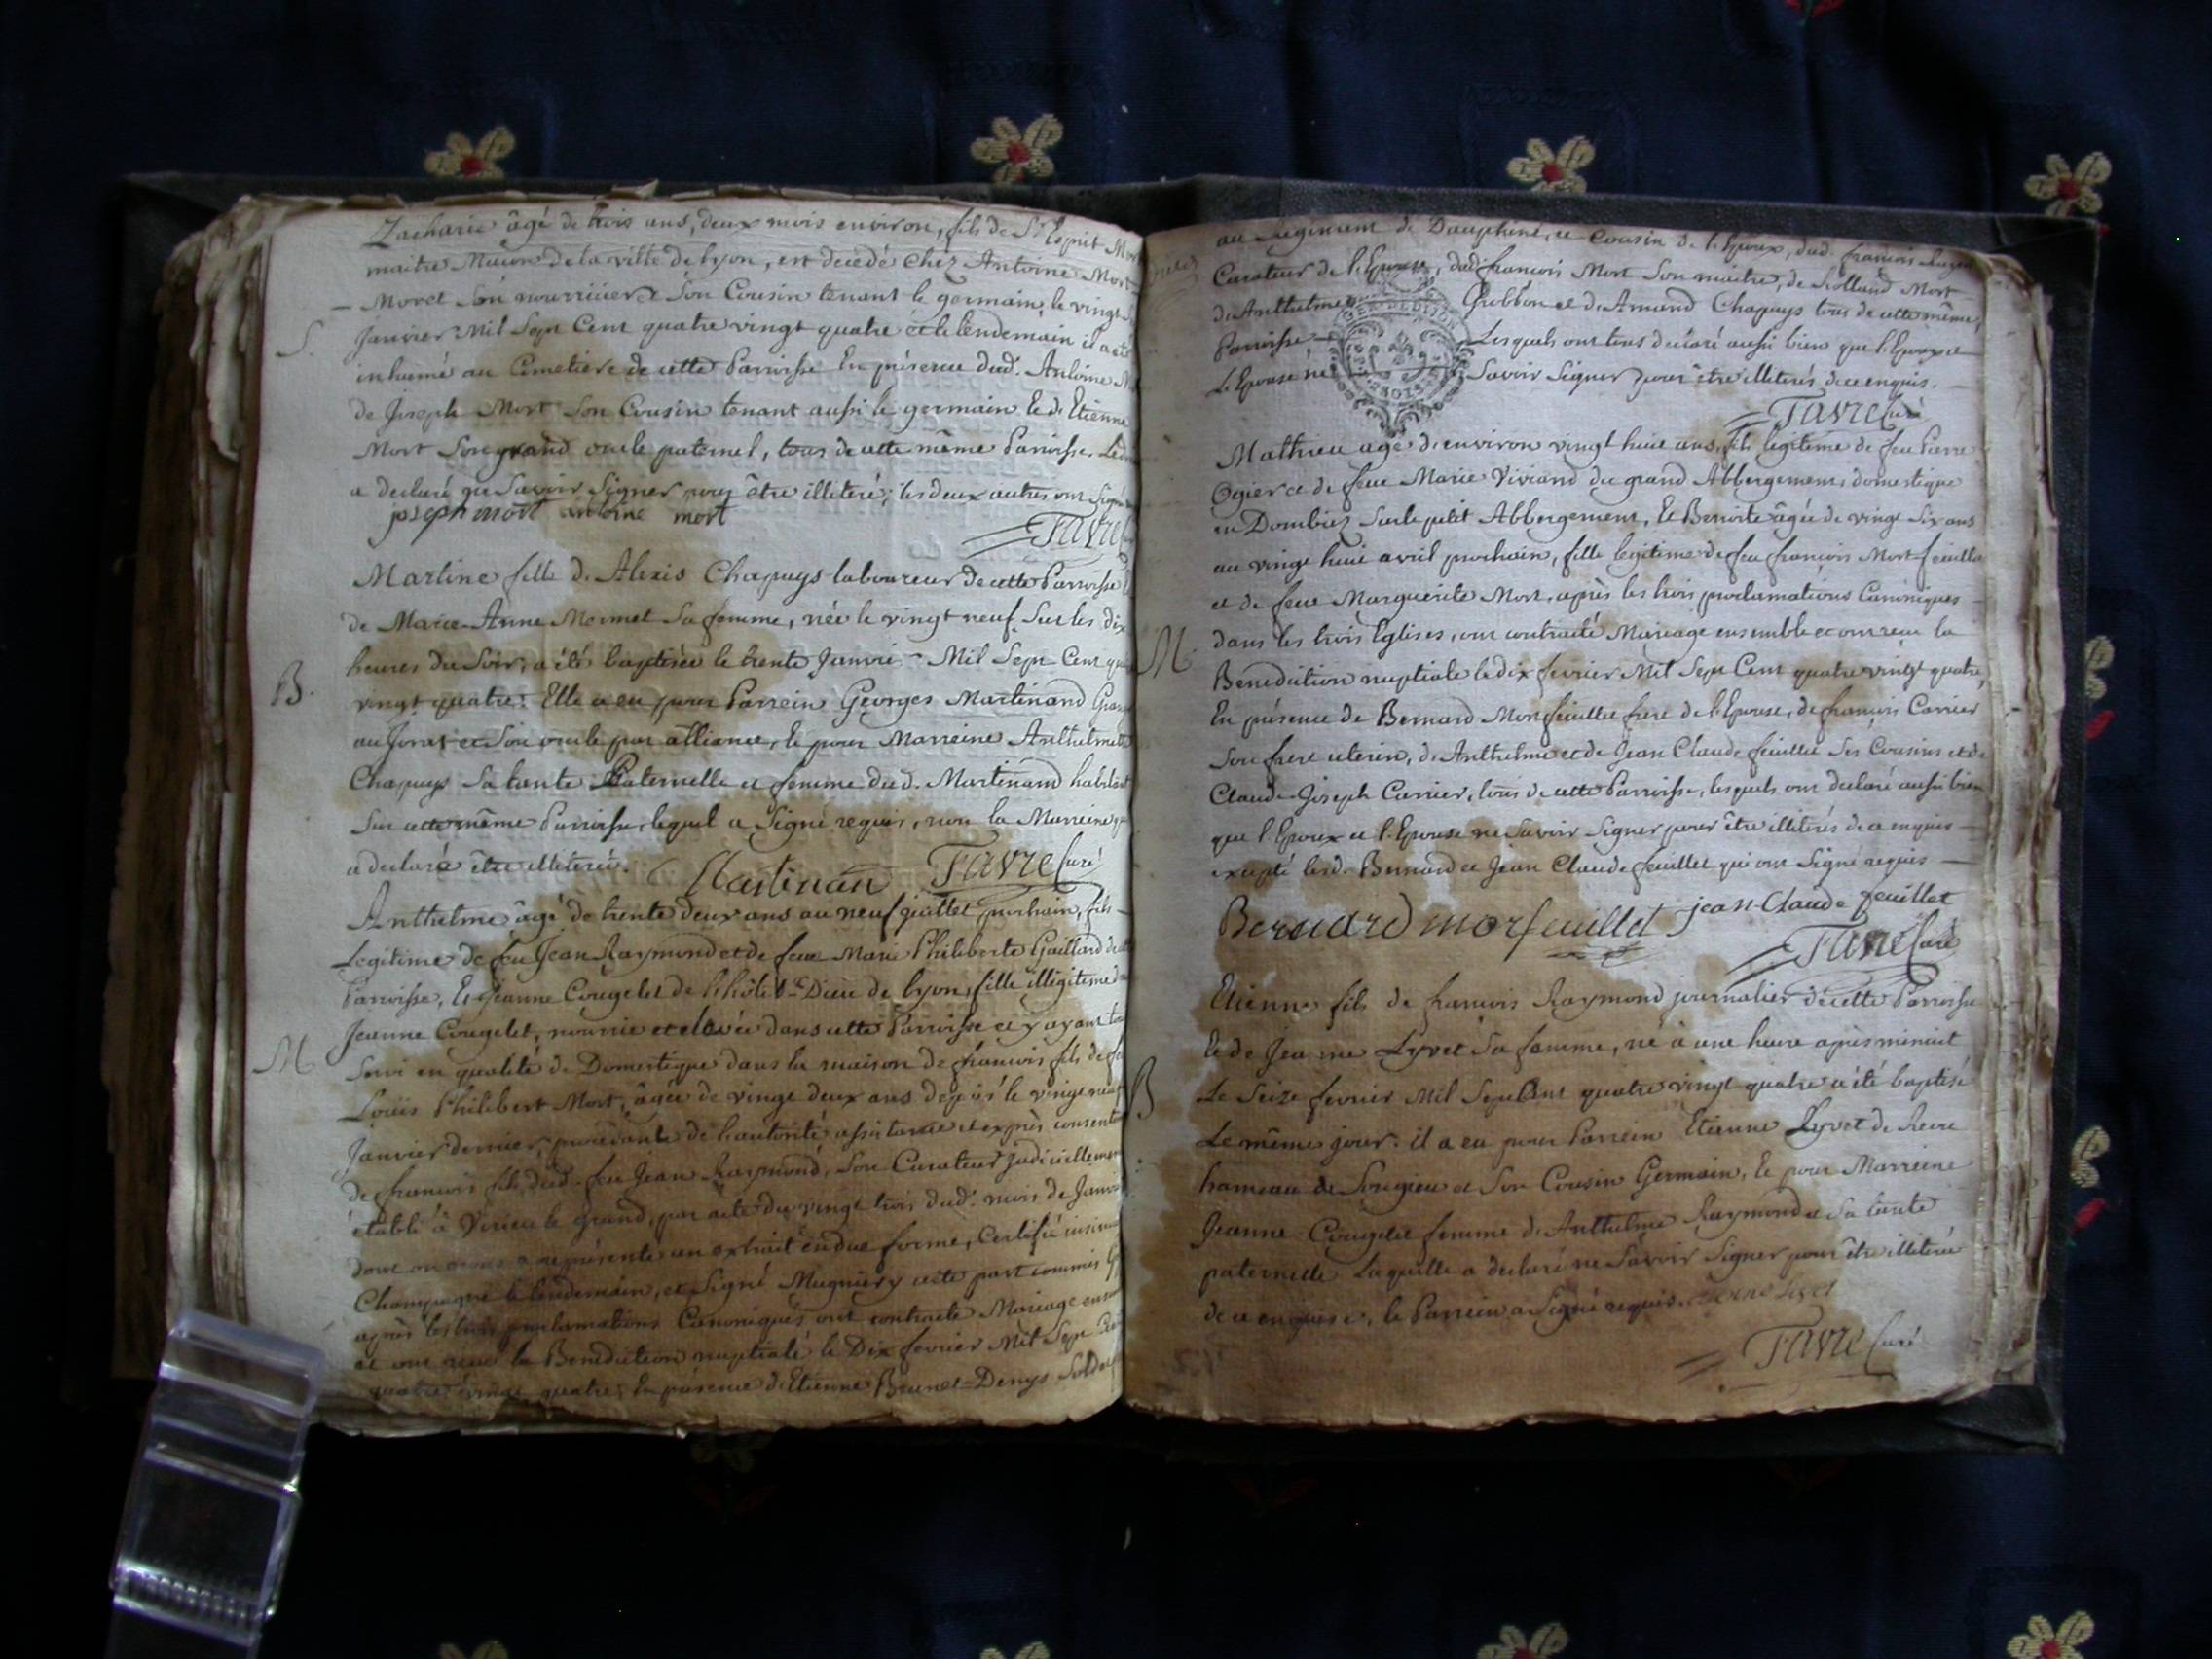 Zacharie âgé de trois ans, deux mois environ, fils de St Esprit Mor
maitre Maçon de la ville de Lyon, est decedé Chez Antoine Mort
Moret son nourricier et Son Cousin tenant le germain, le vingt
S.
Janvier Mil Sept Cent quatre vingt quatre et le lendemain il a été
inhumé au Cimetiere de cette Parroisse En présence dud. Antoine
de Joseph Mort Son Cousin tenant aussi le germain Et de Etienne
Mort Son grand oncle paternel, tous de cette même Parroisse.
a declaré ne Savoir Signer pour être illiteré; les deux autres ont Signé
joseph mort antoine mort
Favre
Martine fille d'Alexis Chapuys laboureur de cette Parroisse
de Marie-Anne Mermet Sa femme, née le vingt neuf Sur les dix
heures du Soir, a été baptisée le trente Janvier Mil Sept Cent
B.
vingt quatre: Elle a eu pour Parrein Georges Martinand
au Jorat et Son oncle par alliance, Et pour Marreine Anthelmette
Chapuys Sa tante Paternelle et femme dud. Martinand
Sur cette même Parroisse, lequel a Signé requis, non la Marreine
a declaré être illiterée.
Martinan Favre Curé
Anthelme âgé de trente deux ans au neuf juillet prochain, fils
Legitime de feu Jean Raymond et de feue Marie Philiberte Gaillard
Parroisse, Et Jeanne Cougelet de l'hôtel Dieu de Lyon, fille illégitime
Jeanne Cougelet, nourrie et elevée dans cette Parroisse et y ayant
M
Servi en qualité de Domestique dans la maison de françois fils de
Loüis Philibert Mort, âgée de vingt deux ans depuis le vingt
Janvier dernier, procedante de l'autorité assistance et exprès
de françois fils dud. feu Jean Raymond, Son Curateur Judiciellement
établi à Virieu le grand, par acte du vingt trois dud. mois de
dont on nous a représenté un extrait en due forme, Certifié
Champagne le lendemain, et Signé Mugniery commis
après les trois proclamations Canoniques ont contracté Mariage
et ont reçu la Benediction nuptiale le Dix fevrier Mil Sept
quatre vingt quatre, En présence d'Etienne Brunet-Denys Soldat
au Regiment de Dauphiné, et Cousin de l'Epoux, dud. françois
Curateur de l'Epouse, dud. françois Mort Son maitre, de Rolland Mort
de Anthelme Grobbon et d'Amand Chapuys tous de cette même
Parroisse Lesquels ont tous declaré aussi bien que l'Epoux et
L'Epouse ne Savoir Signer pour être illiterés de ce enquis.
Favre Curé
Mathieu agé d'environ vingt huit ans, fils legitime de feu Pierre
Ogier et de feue Marie Viviand du grand Abbergement, domestique
en Dombiez Sur le petit Abbergement, Et Benoite âgée de vingt Six ans
au vingt huit avril prochain, fille legitime de feu françois Mort feuillet
et de feue Marguerite Mort, après les trois proclamations Canoniques
dans les trois Eglises, ont contracté Mariage ensemble et ont reçu la
M.
Benediction nuptiale le dix fevrier Mil Sept Cent quatre vingt quatre,
En présence de Bernard Mortfeuillet frere de l'Epouse, de françois Carrier
Son frere uterin, d'Anthelme et de Jean Claude feuillet Ses Cousins et de
Claude-Joseph Carrier, tous de cette Parroisse, lesquels ont declaré aussi bien
que l'Epoux et l'Epouse ne Savoir Signer pour être illiterés de ce enquis
excepté lesd. Bernard et Jean Claude feuillet qui ont Signé requis
Bernard morfeuillet jean Claude feuillet
Favre Curé
Etienne fils de françois Raymond journalier de cette Parroisse
Et de Jeanne Lyvet Sa femme, né à une heure après minuit
B
Le Seize fevrier Mil Sept Cent quatre vingt quatre a été baptisé
Le même jour: il a eu pour Parrein Etienne Lyvet de
hameau de Songieu et Son Cousin Germain, Et pour Marreine
Jeanne Cougelet femme d'Anthelme Raymond et Sa tante
paternelle Laquelle a declaré ne Savoir Signer pour être illiterée
de ce enquise, le Parrein a Signé requis. etienne livet
Favre Curé